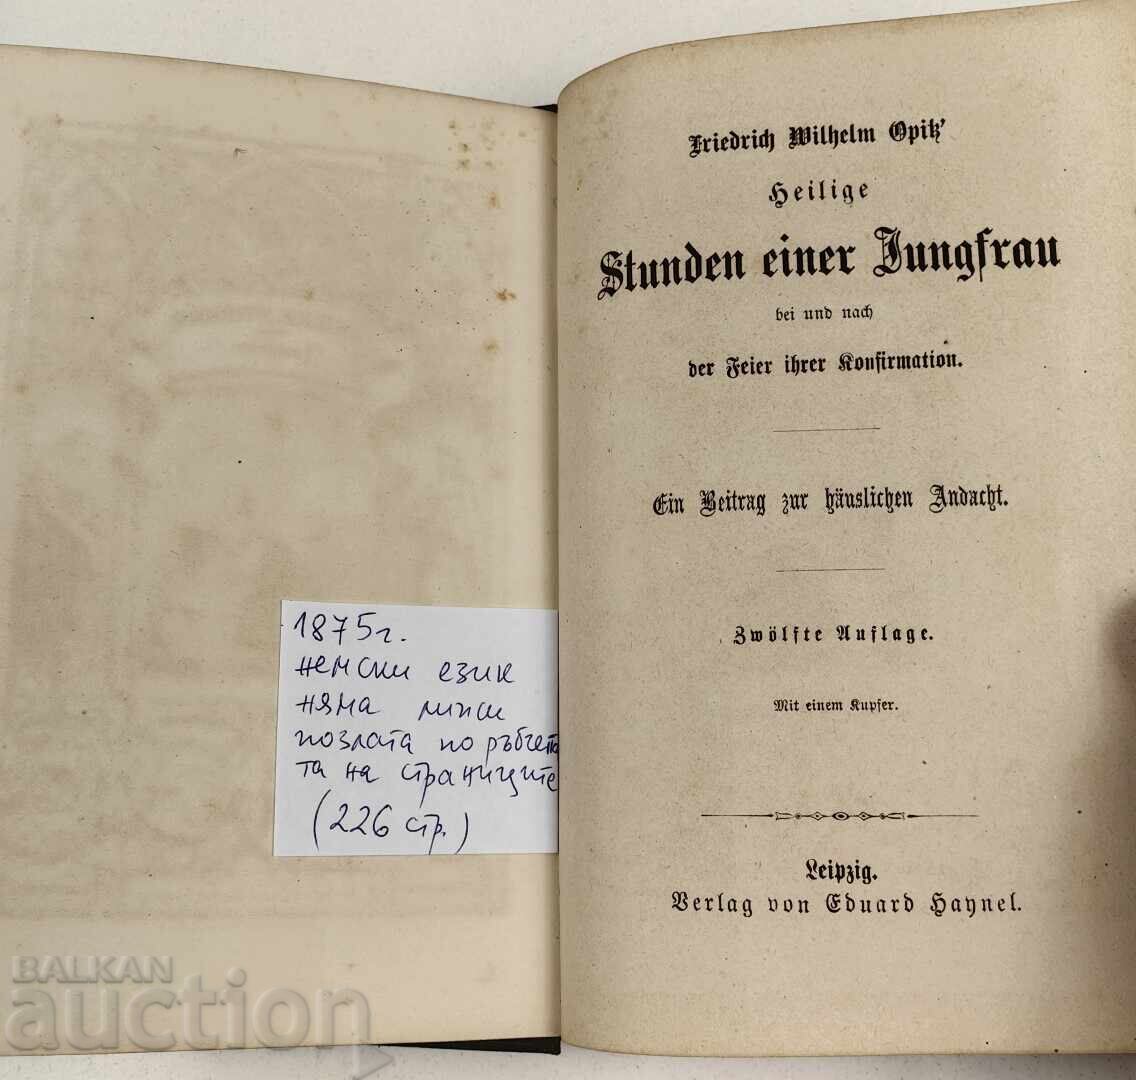 1875г.
немски език
няма липси
позлата по ръбчета
та на страниците
(226 стр.)
Friedrich Wilhelm Opitz'
Heilige
Stunden einer Jungfrau
bei und nach
der Feier ihrer Konfirmation.
Ein Beitrag zur häuslichen Andacht.
Zwölfte Auflage.
Mit einem Kupfer.
Leipzig.
Verlag von Eduard Haynel.
BALKAN
auction